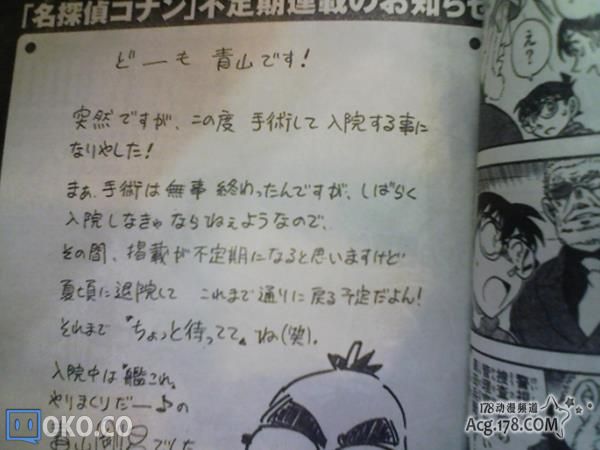 「名探偵コナン」不定期連載のお知らせ
どーも 青山です!
突然ですが、この度 手術して入院する事に
なりやした!
まぁ、手術は無事終わったんですが、しばらく
入院しなきゃならねぇようなので、
その間、掲載が不定期になると思いますけど
夏頃に退院して これまで通りに戻る予定だよん!
それまで〝ちょっと待ってて〟ね(笑)。
入院中は〝艦これ〟
やりまくりだー♪の
青山剛昌でした
え?
OKO.CO
178动漫频道
Acg.178.com